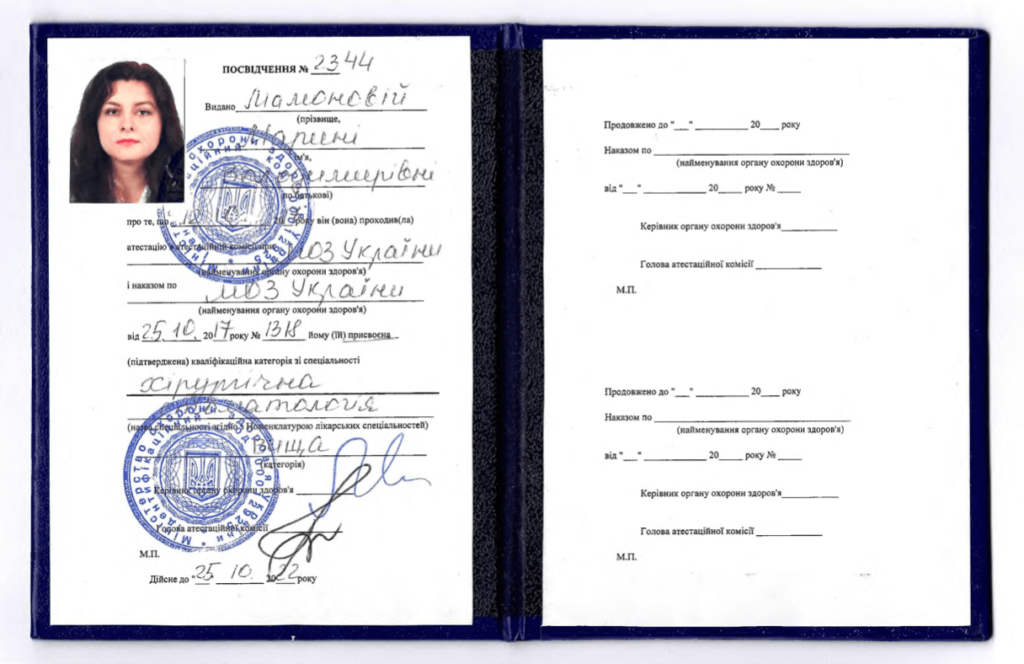 ПОСВІДЧЕННЯ № 2344
Видано Мамоновій
(прізвище,
Марині
ім'я,
Володимирівні
по батькові)
про те, що 12 20 року він (вона) проходив(ла)
атестацію в атестаційній комісії при
МОЗ України
(найменування органу охорони здоров'я)
і наказом по МОЗ України
(найменування органу охорони здоров'я)
від 25.10. 2017 року № 1318 йому (їй) присвоєна
(підтверджена) кваліфікаційна категорія зі спеціальності
хірургічна
стоматологія
(назва спеціальності згідно з Номенклатурою лікарських спеціальностей)
Вища
(категорія)
Керівник органу охорони здоров'я
Голова атестаційної комісії
М.П.
Дійсне до "25 10. 2022 року
Міністерство охорони здоров'я України
Ідентифікаційний код 00012925
Продовжено до "___" ___________ 20____ року
Наказом по ________________________________
(найменування органу охорони здоров'я)
від "___" _____________ 20_____ року № _____
Керівник органу охорони здоров'я____________
Голова атестаційної комісії ______________
М.П.
Продовжено до "___" ___________ 20____ року
Наказом по ________________________________
(найменування органу охорони здоров'я)
від "___" _____________ 20____ року № _____
Керівник органу охорони здоров'я____________
Голова атестаційної комісії ______________
М.П.